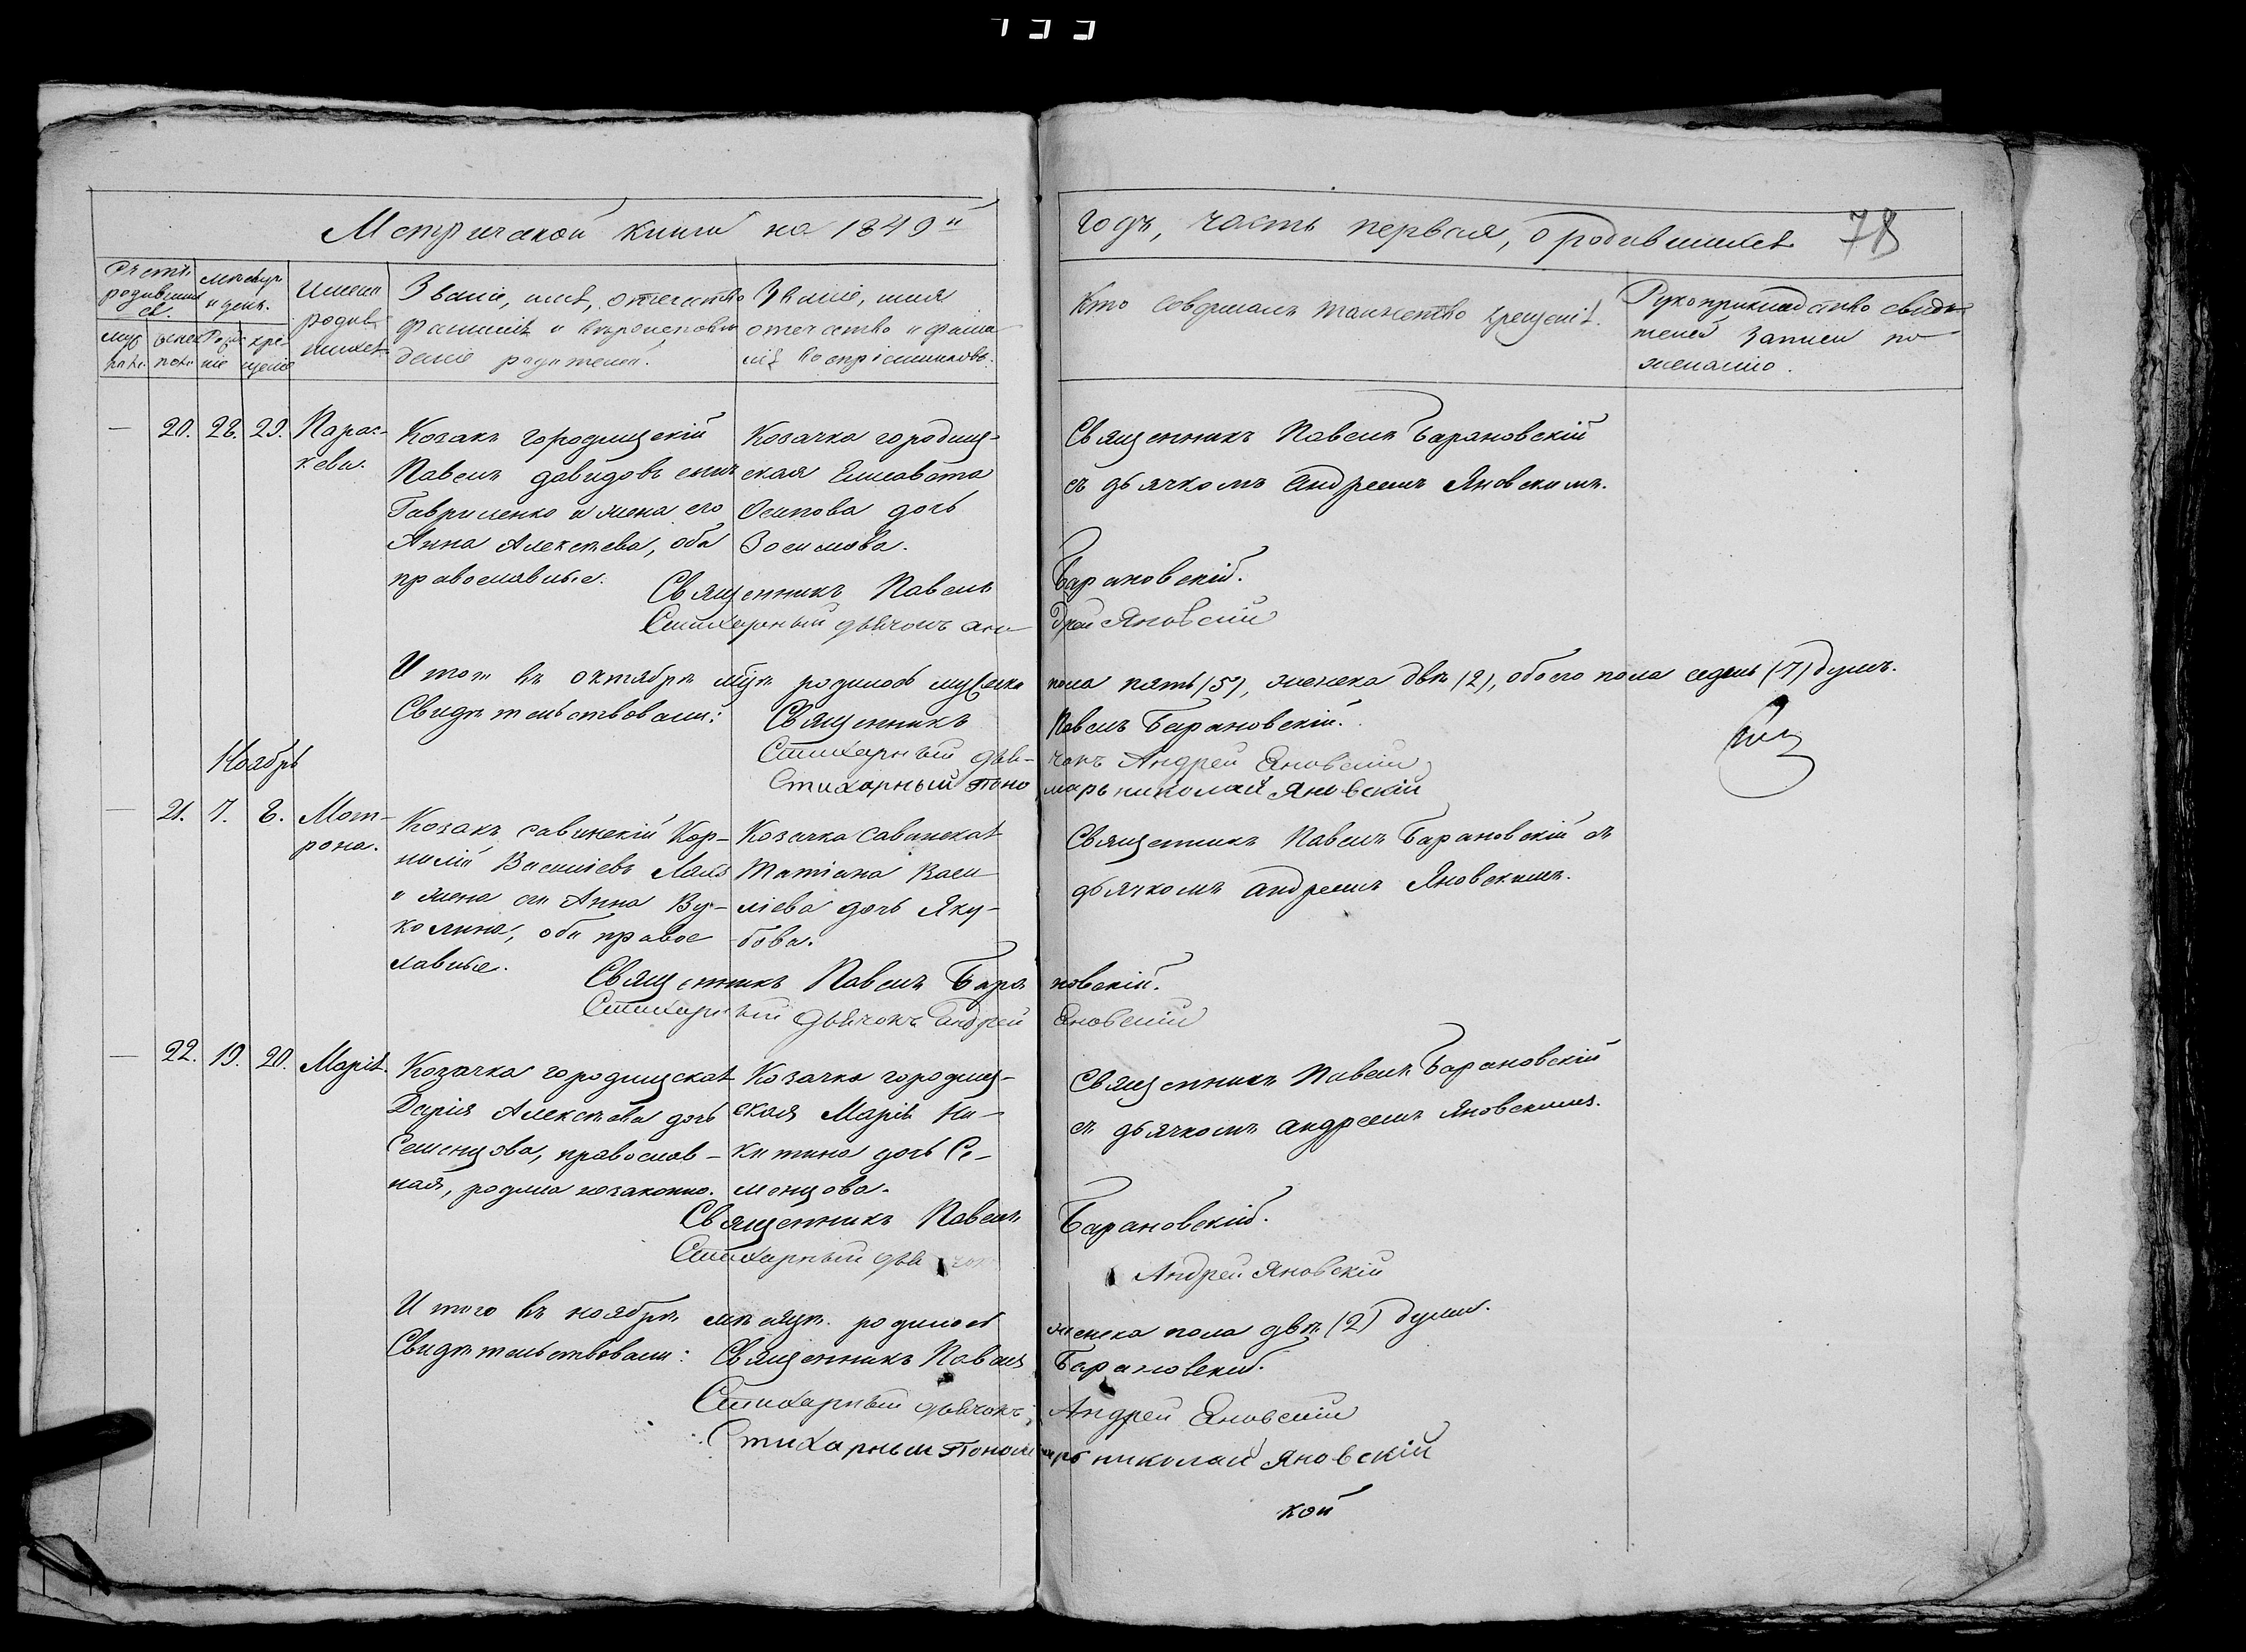 Метрической книги на 1849й
годъ, часть первая, о родившихся. 78
Счетъ родившихся.
мужска.
женска.
Мѣсяцъ и день.
Рожденіе
крещеніе
Имена родившихся
Званіе, имя, отечество
фамилія и вѣроисповѣ
даніе родителей.
Званіе, имя
отечество и фами
лія воспріемниковъ.
Кто совершалъ таинство крещенія.
Рукоприкладство свидѣ
телей записи по
желанію.
— 20. 28. 29. Парас-
кева.
Козакъ городищскій
Павелъ Давидовъ сынъ
Гавриленко и жена его
Анна Алексѣева, оба
православные.
Козачка городищ-
ская Елисавета
Осипова дочь
Зосимова.
Священникъ Павелъ Барановскій
съ дьячкомъ Андреемъ Яновскимъ.
Священникъ Павелъ Барановскій.
Стихарный дьячокъ Андрей Яновскій
Итого въ октябрѣ мѣсяцѣ родилось мужеска пола пять (5), женска двѣ (2), обоего пола седмь (7) душъ.
Свидѣтельствовали: Священникъ Павелъ Барановскій.
Стихарный дьячокъ Андрей Яновскій
Стихарный Пономарь николай Яновскій
Ноябрь
— 21. 7. 8. Мот-
рона.
Козакъ савинскій Кор-
нилій Василіевъ Ляхъ
и жена его Анна Ву-
колина, оба правос
лавные.
Козачка савинская
Татіана Васи
ліева дочь Яку-
бова.
Священникъ Павелъ Барановскій съ
дьячкомъ Андреемъ Яновскимъ.
Священникъ Павелъ Барановскій.
Стихарный дьячокъ Андрей Яновскій
— 22. 19. 20. Марія.
Козачка городищская
Дарія Алексѣева дочь
Семенцова, православ-
ная, родила незаконно.
Козачка городищ-
ская Марія Ни-
китина дочь Се-
менцова.
Священникъ Павелъ Барановскій
съ дьячкомъ Андреемъ Яновскимъ.
Священникъ Павелъ Барановскій.
Стихарный дьячокъ Андрей Яновскій
Итого въ ноябрѣ мѣсяцѣ родилось женска пола двѣ (2) души.
Свидѣтельствовали: Священникъ Павелъ Барановскій.
Стихарный дьячокъ Андрей Яновскій
Стихарный Пономарь николай Яновскій
кой